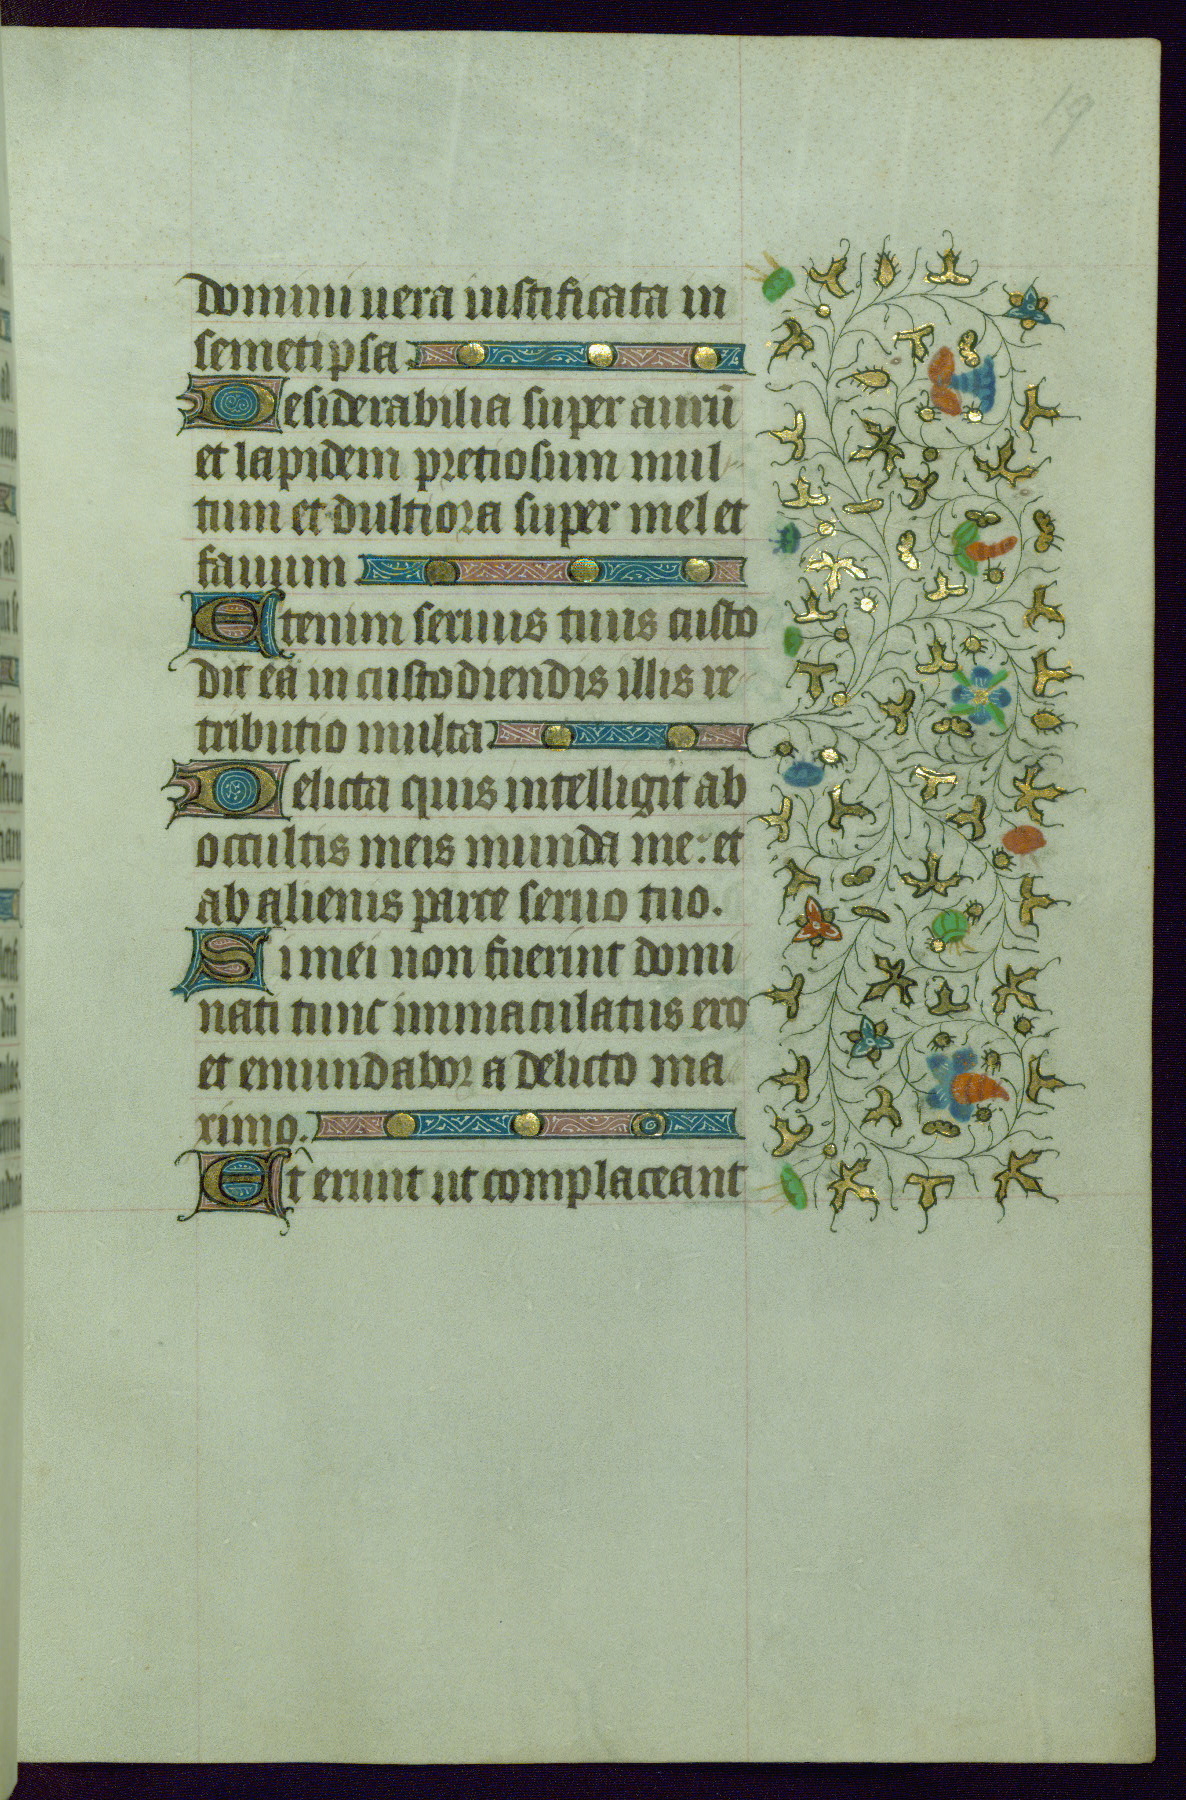 19
domini uera iustificata in
semetipsa.
Desiderabilia super aurū
et lapidem pretiosum mul
tum et dultiora super mel et
fauum
Etenim seruus tuus custo
dit ea in custodiendis illis re
tributio multa
Delicta quis intelligit ab
occultis meis munda me: et
ab alienis parce seruo tuo.
Si mei non fuerint domi
nati tunc immaculatus ero
et emundabor a delicto ma
ximo.
Et erunt ut complaceant